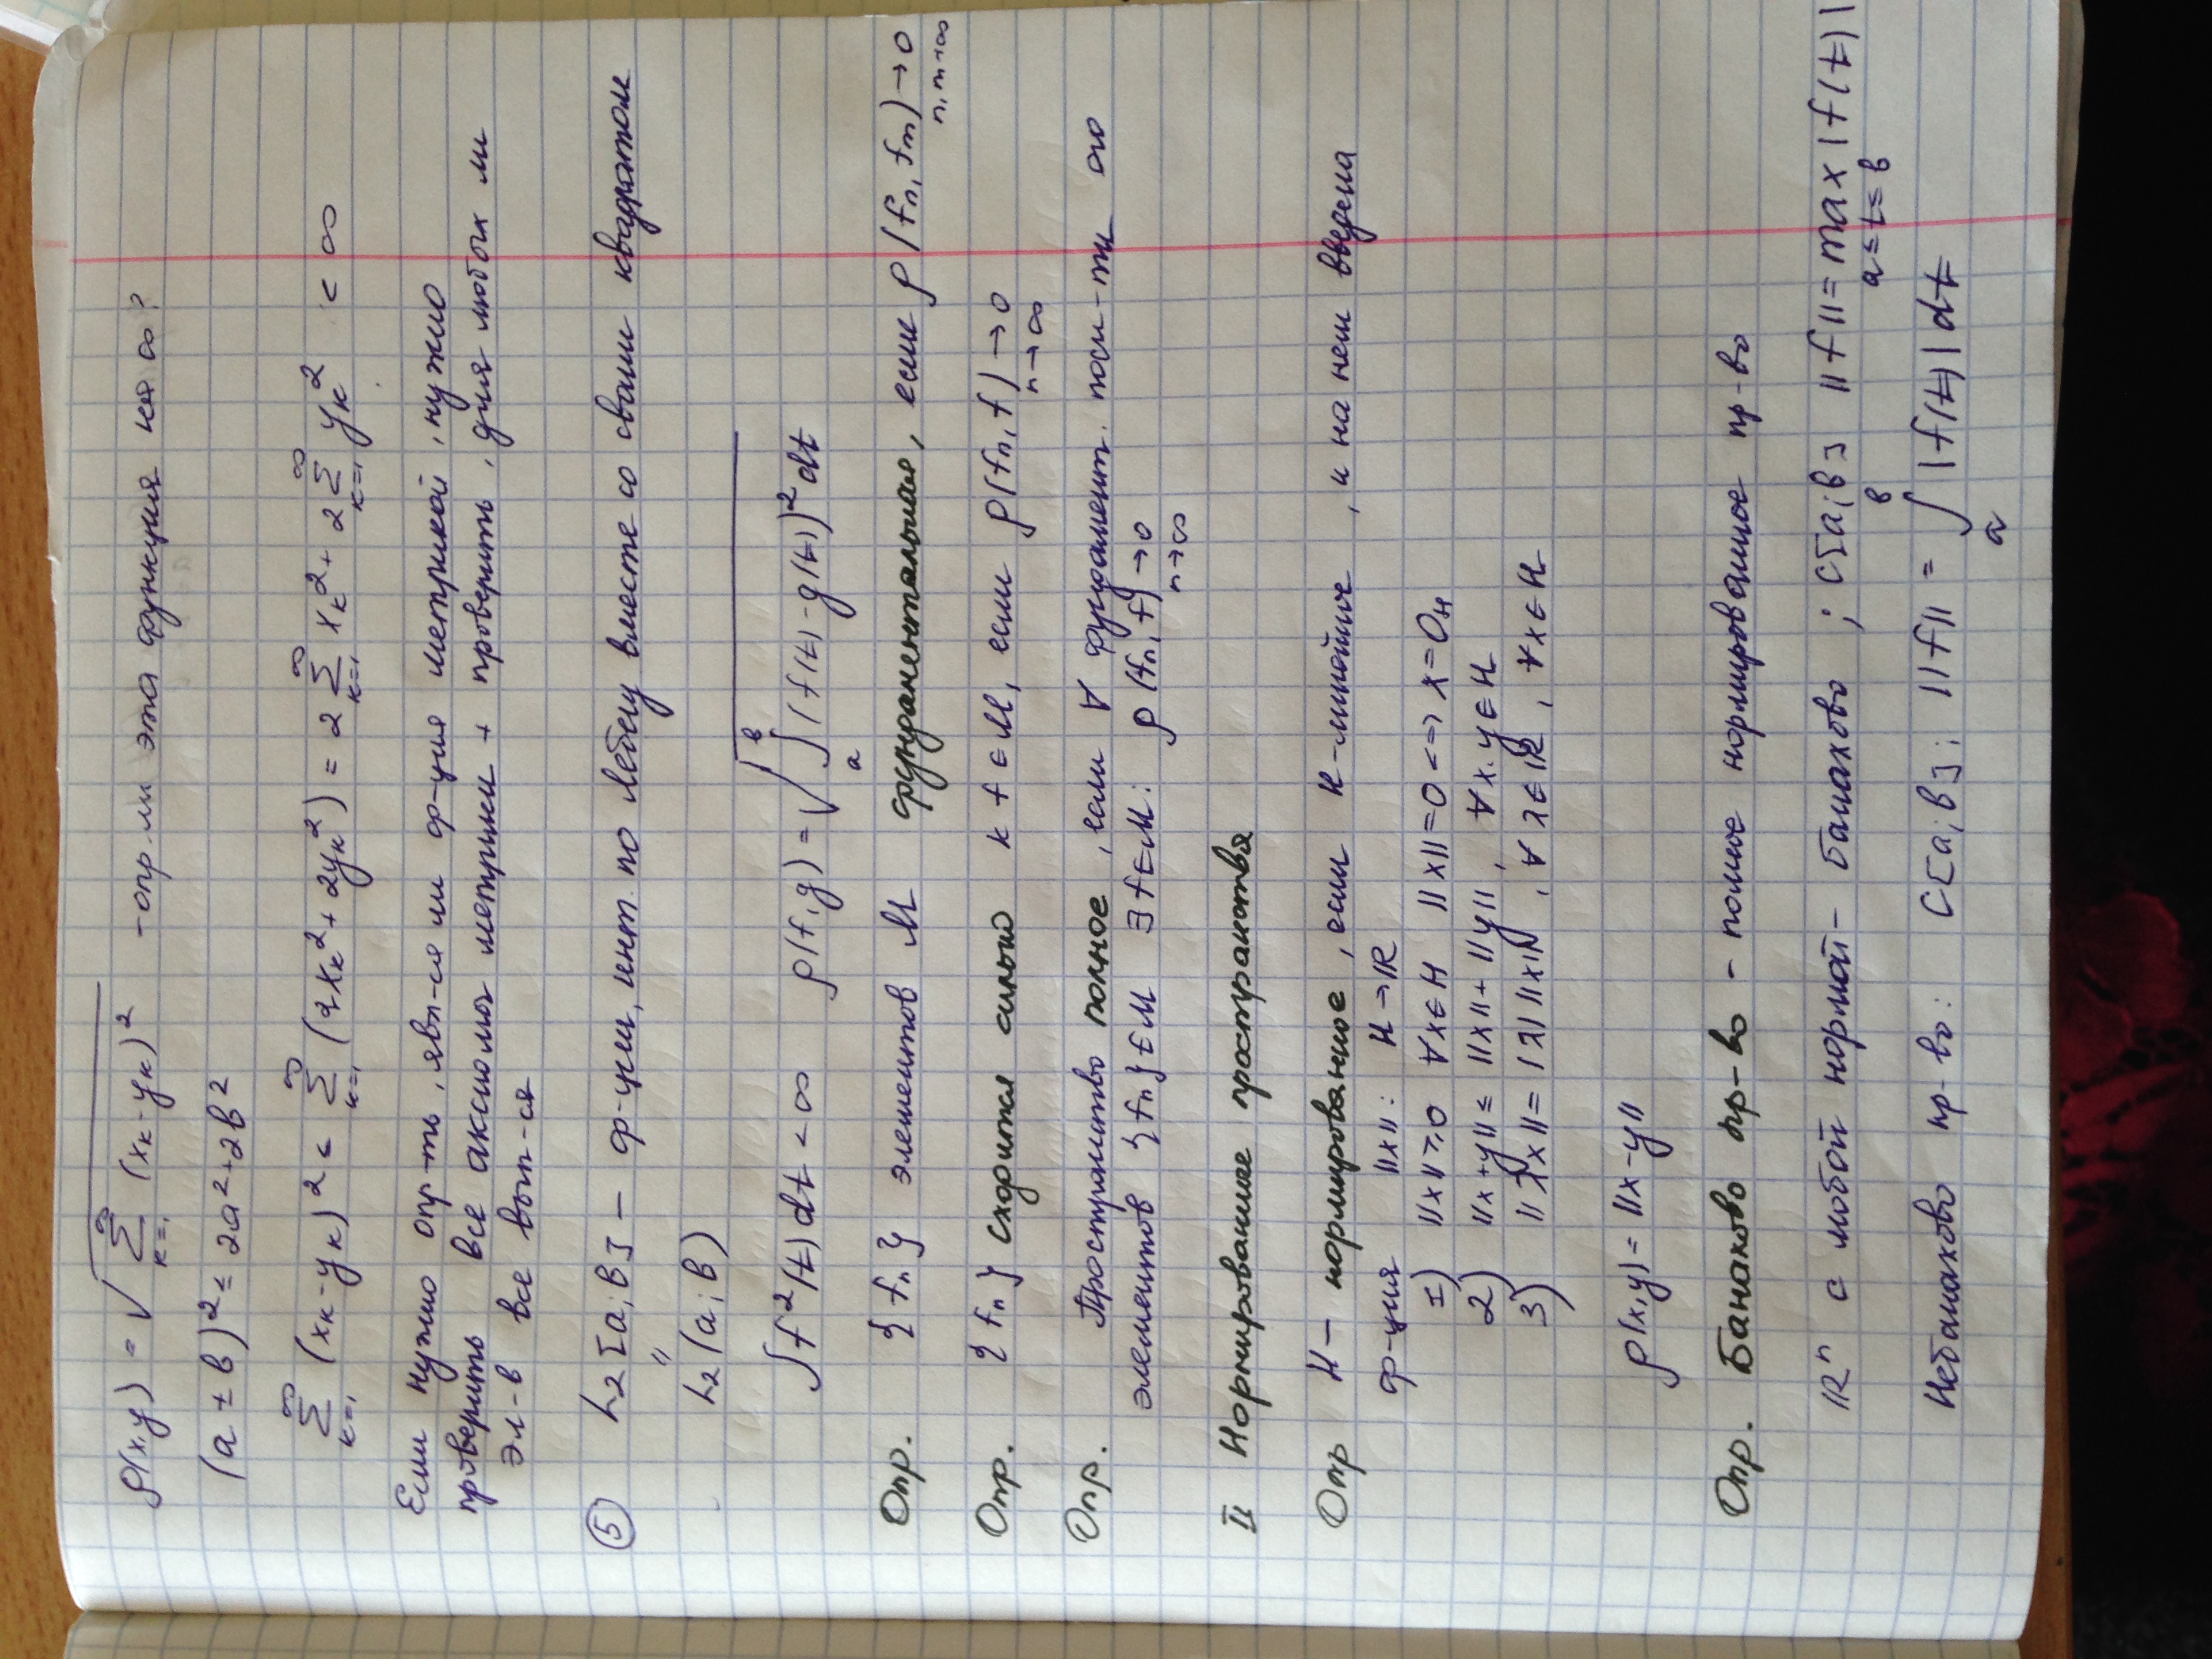 ρ(x,y) = √(∑_{k=1}^∞ (x_k - y_k)²) - опр. ли эта функция на ∞?
(a ± b)² ≤ 2a² + 2b²
∑_{k=1}^∞ (x_k - y_k)² < ∑_{k=1}^∞ (2x_k² + 2y_k²) = 2∑_{k=1}^∞ x_k² + 2∑_{k=1}^∞ y_k² < ∞
Если нужно опр-ть, явл-ся ли ф-ция метрикой, нужно
проверить все аксиомы метрики + проверить, для любых ли
эл-в все вып-ся
⑤ L₂[a;b] — ф-ции, инт. по Лебегу вместе со своим квадратом
"
L₂(a;b)
∫f²(t)dt < ∞ ρ(f,g) = √(∫_a^b (f(t) - g(t))² dt)
Опр. {f_n} элементов M фундаментальная, если ρ(f_n, f_m) → 0 n,m→∞
Опр. {f_n} сходится сильно к f ∈ M, если ρ(f_n, f) → 0 n→∞
Опр. Пространство полное, если ∀ фундамент. посл-ти его
элементов {f_n} ∈ M ∃ f ∈ M: ρ(f_n, f) → 0 n→∞
II Нормированные пространства
Опр H — нормированное, если H-линейное, и на нем введена
ф-ция ||x||: H → ℝ
1) ||x|| ≥ 0 ∀x ∈ H ||x|| = 0 <=> x = 0_H
2) ||x+y|| ≤ ||x|| + ||y||, ∀x,y ∈ H
3) ||λx|| = |λ| ||x||, ∀λ ∈ ℝ, ∀x ∈ H
ρ(x,y) = ||x-y||
Опр. Банахово пр-во - полное нормированное пр-во
ℝⁿ с любой нормой - банахово ; C[a;b] ||f|| = max |f(t)| a≤t≤b
Небанахово пр-во: C[a;b]; ||f|| = ∫_a^b |f(t)| dt